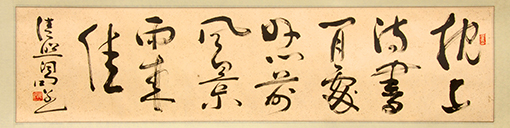 枕上
詩書
閒處
好門前
風景
雨來
佳
清照